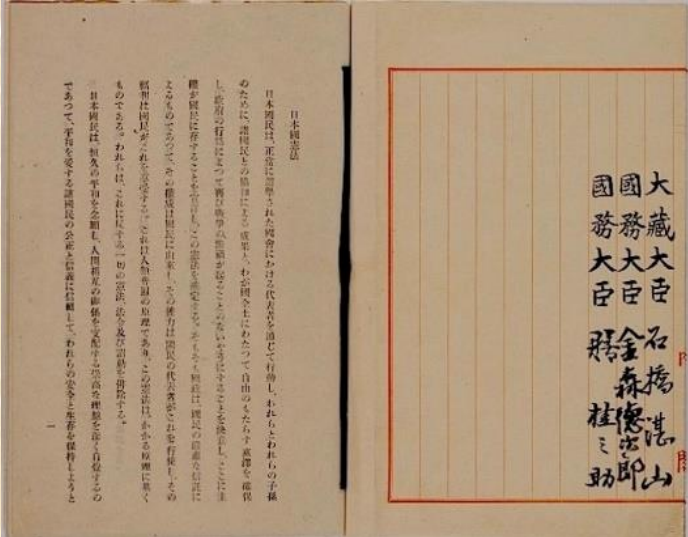 大藏大臣 石橋湛山
國務大臣 金森德次郎
國務大臣 膳 桂之助
日本國憲法
日本國民は、正當に選擧された國會における代表者を通じて行動し、われらとわれらの子孫
のために、諸國民との協和による成果と、わが國全土にわたつて自由のもたらす惠澤を確保
し、政府の行爲によつて再び戰爭の慘禍が起ることのないやうにすることを決意し、ここに主
權が國民に存することを宣言し、この憲法を確定する。そもそも國政は、國民の嚴肅な信託に
よるものであつて、その權威は國民に由來し、その權力は國民の代表者がこれを行使し、その
福利は國民がこれを享受する。これは人類普遍の原理であり、この憲法は、かかる原理に基く
ものである。われらは、これに反する一切の憲法、法令及び詔勅を排除する。
日本國民は、恒久の平和を念願し、人間相互の關係を支配する崇高な理想を深く自覺するの
であつて、平和を愛する諸國民の公正と信義に信賴して、われらの安全と生存を保持しようと
一